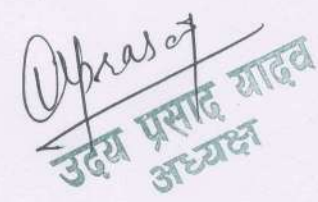 उदय प्रसाद यादव
अध्यक्ष